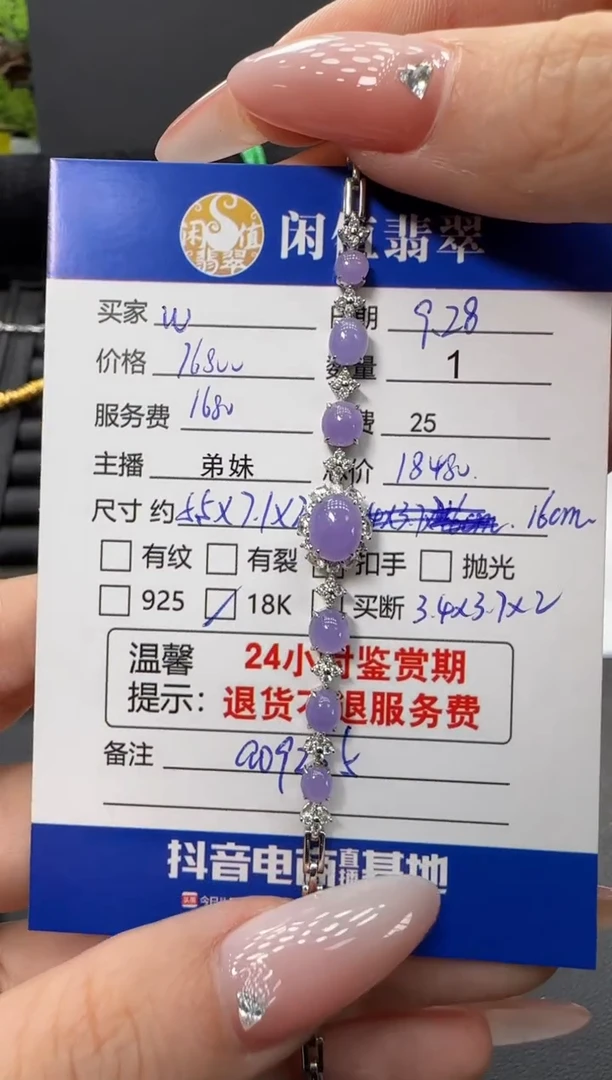 闲值翡翠
闲值翡翠
买家 W 日期 9.28
价格 16800 数量 1
服务费 1680 费 25
主播 弟妹 总价 18480.
尺寸 约 5.5X7.1X2 16cm
有纹 有裂 扣手 抛光
925 18K 买断 3.4x3.7x2
温馨 24小时鉴赏期
提示: 退货不退服务费
备注
抖音电商直播基地